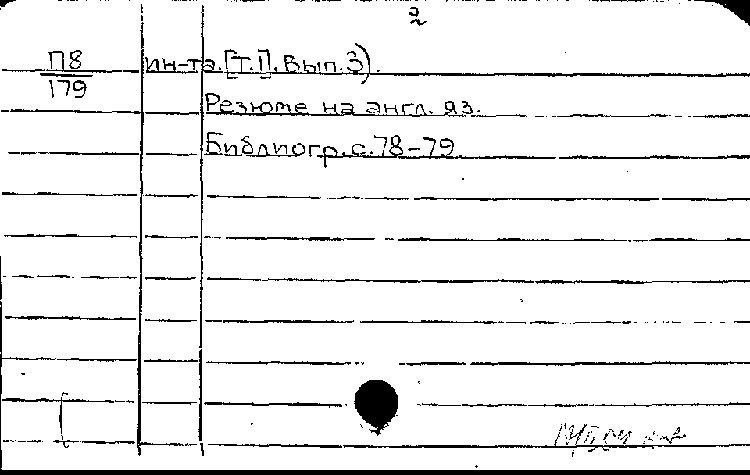 2
П8
179
ин-та. [Т.1]. Вып. 3).
Резюме на англ. яз.
Библиогр. с. 78-79